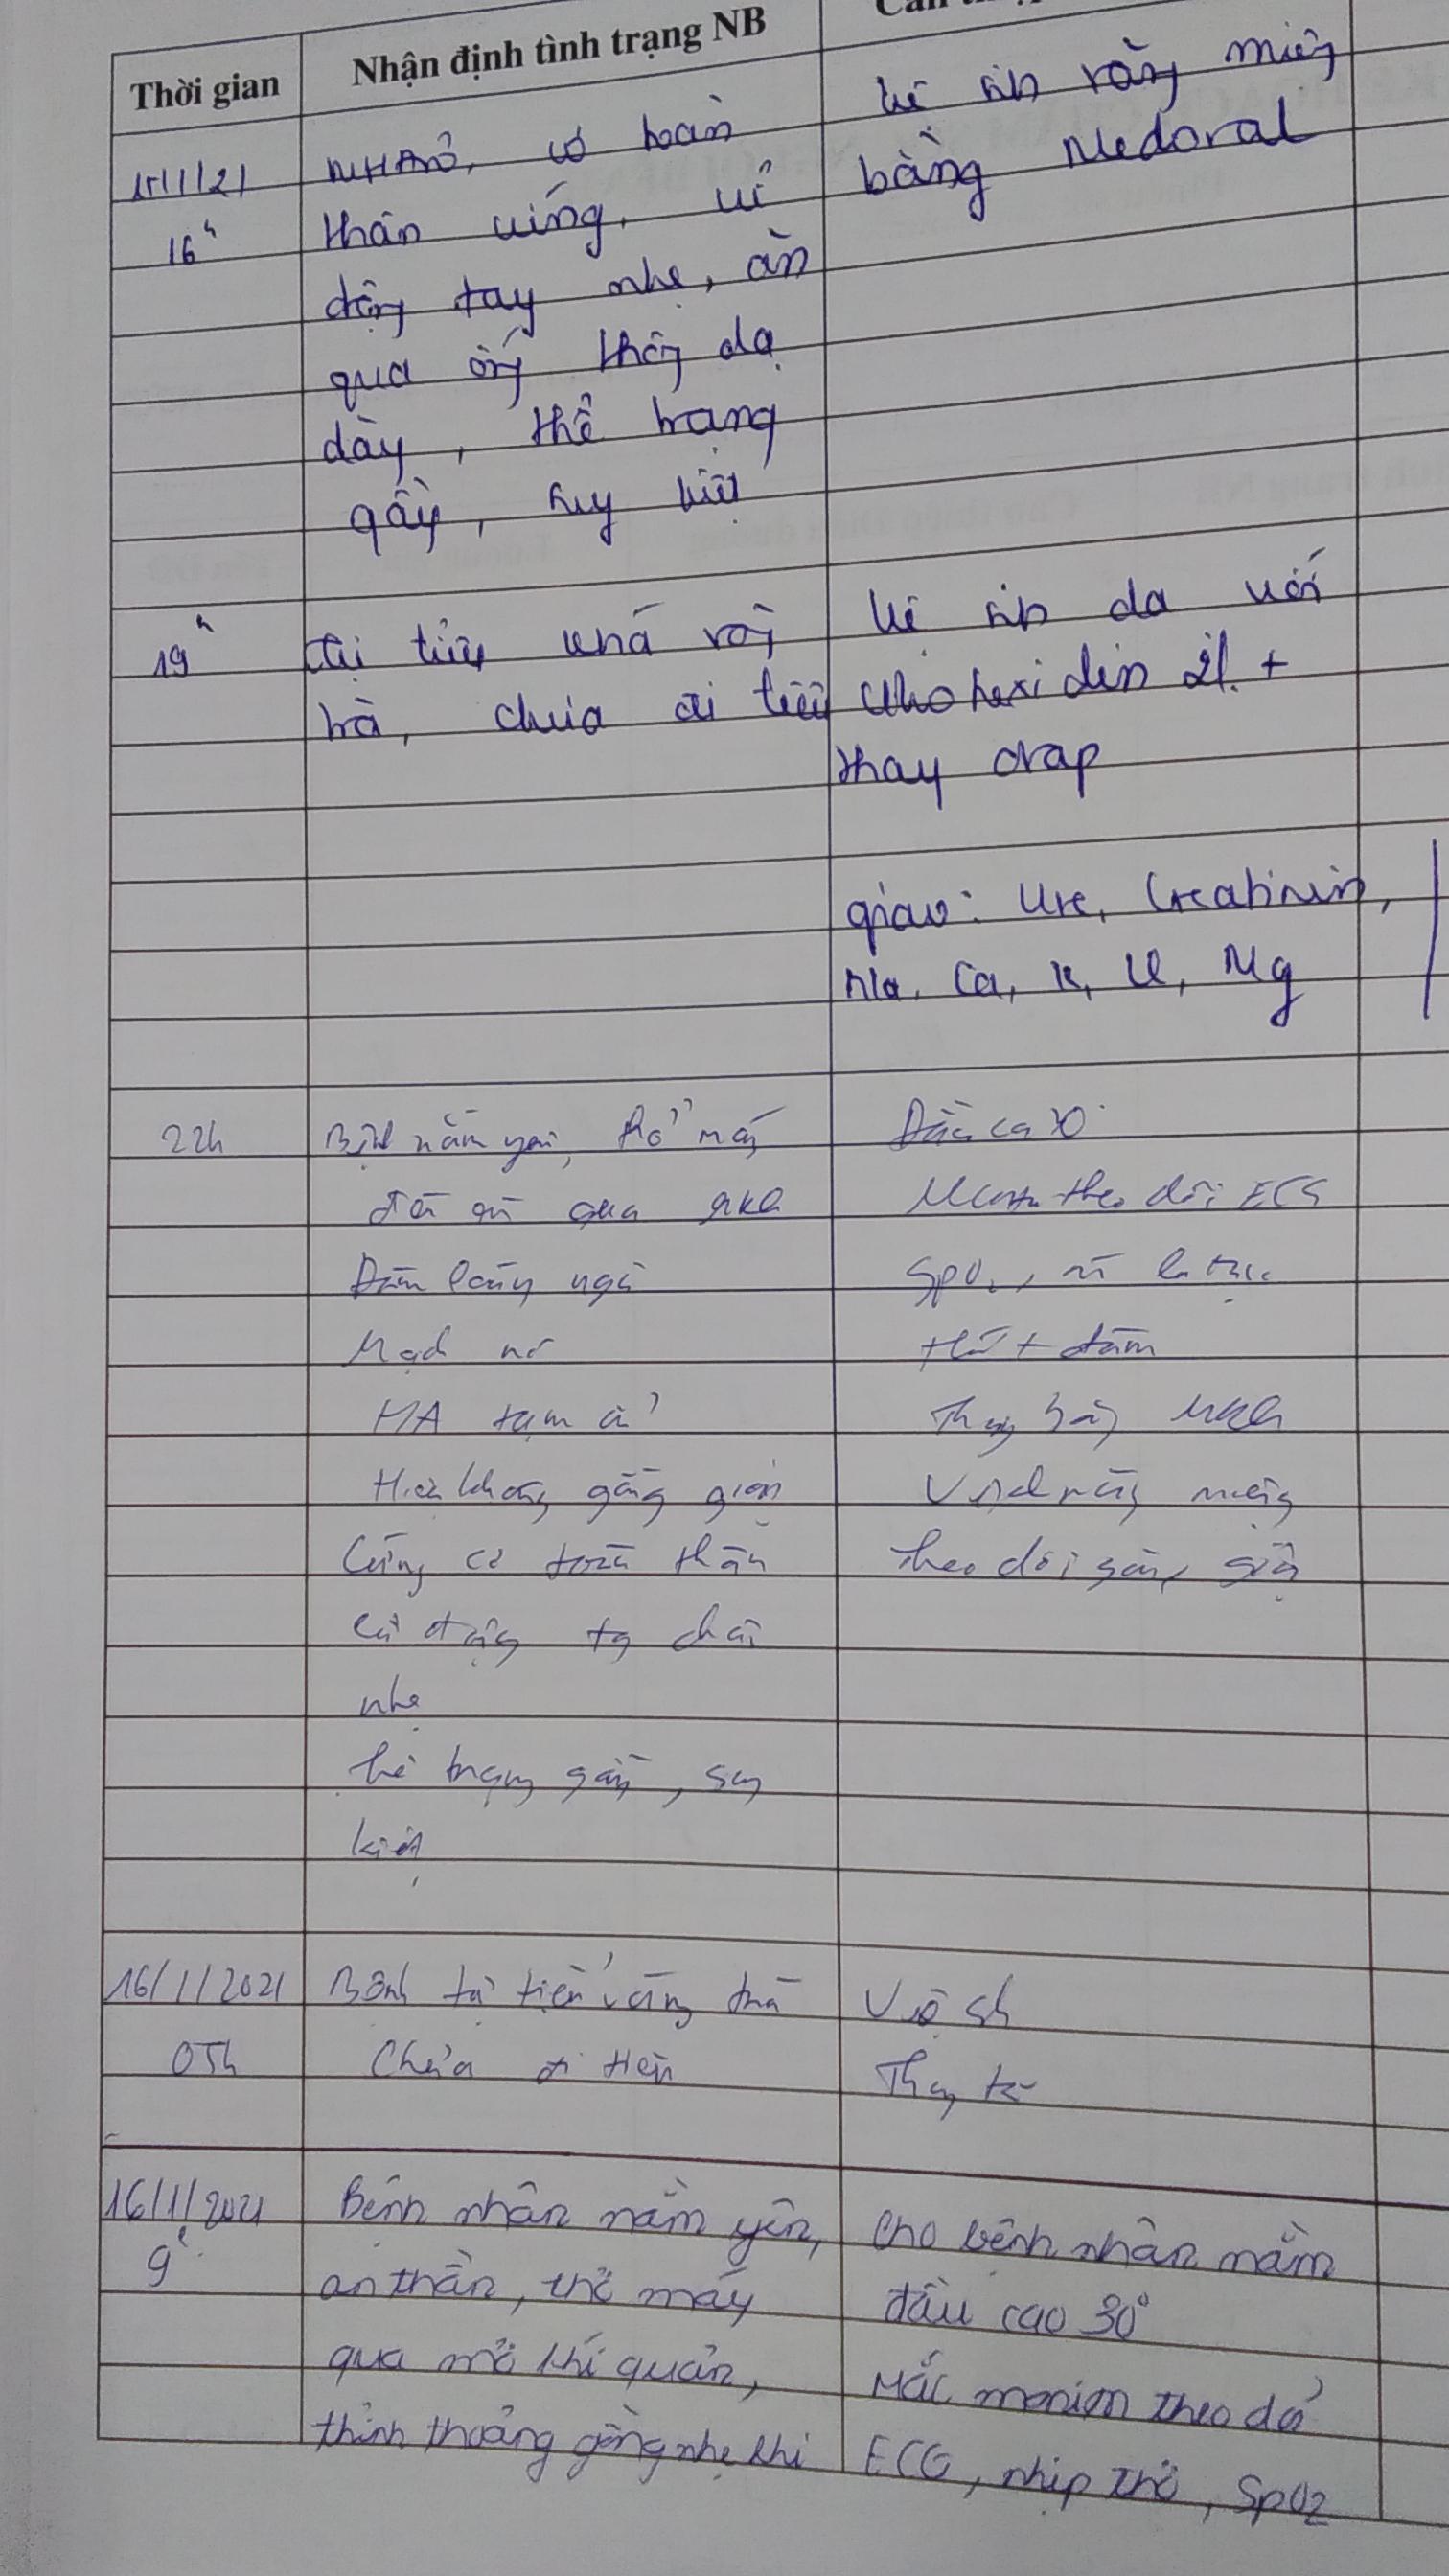 Thời gian
Nhận định tình trạng NB
15/1/21
16h
cơ toàn
thân cứng, cử
động tay nhẹ, ăn
qua ống thông dạ
dày, thể trạng
gầy, suy kiệt
Vệ sinh răng miệng
bằng Medoral
19h
trà, chưa đi tiêu
Vệ sinh da với
Chohexidin 2% +
thay drap
giao: Ure, Creatinin,
Na, Ca, K, Cl, Mg
22h
nằm yên, thở máy
qua MKQ
Đàm loãng ngà
Mạch rõ
HA tạm ổn
Hiện không gồng giật
Cứng cơ toàn thân
Cử động tay chân
nhẹ
thể trạng gầy, suy
kiệt
Đầu cao
theo dõi ECG
SpO2,
Hút đàm
Thay băng MKQ
VS răng miệng
Theo dõi gồng giật
16/1/2021
05h
Bệnh tự tiểu vàng trà
Chưa đi tiêu
Vệ sh
Thay tã
16/1/2021
9h
Bệnh nhân nằm yên,
an thần, thở máy
qua mở khí quản,
thỉnh thoảng gồng nhẹ khi
Cho bệnh nhân nằm
đầu cao 30°
Mắc moniton theo dõi
ECG, nhịp thở, SpO2